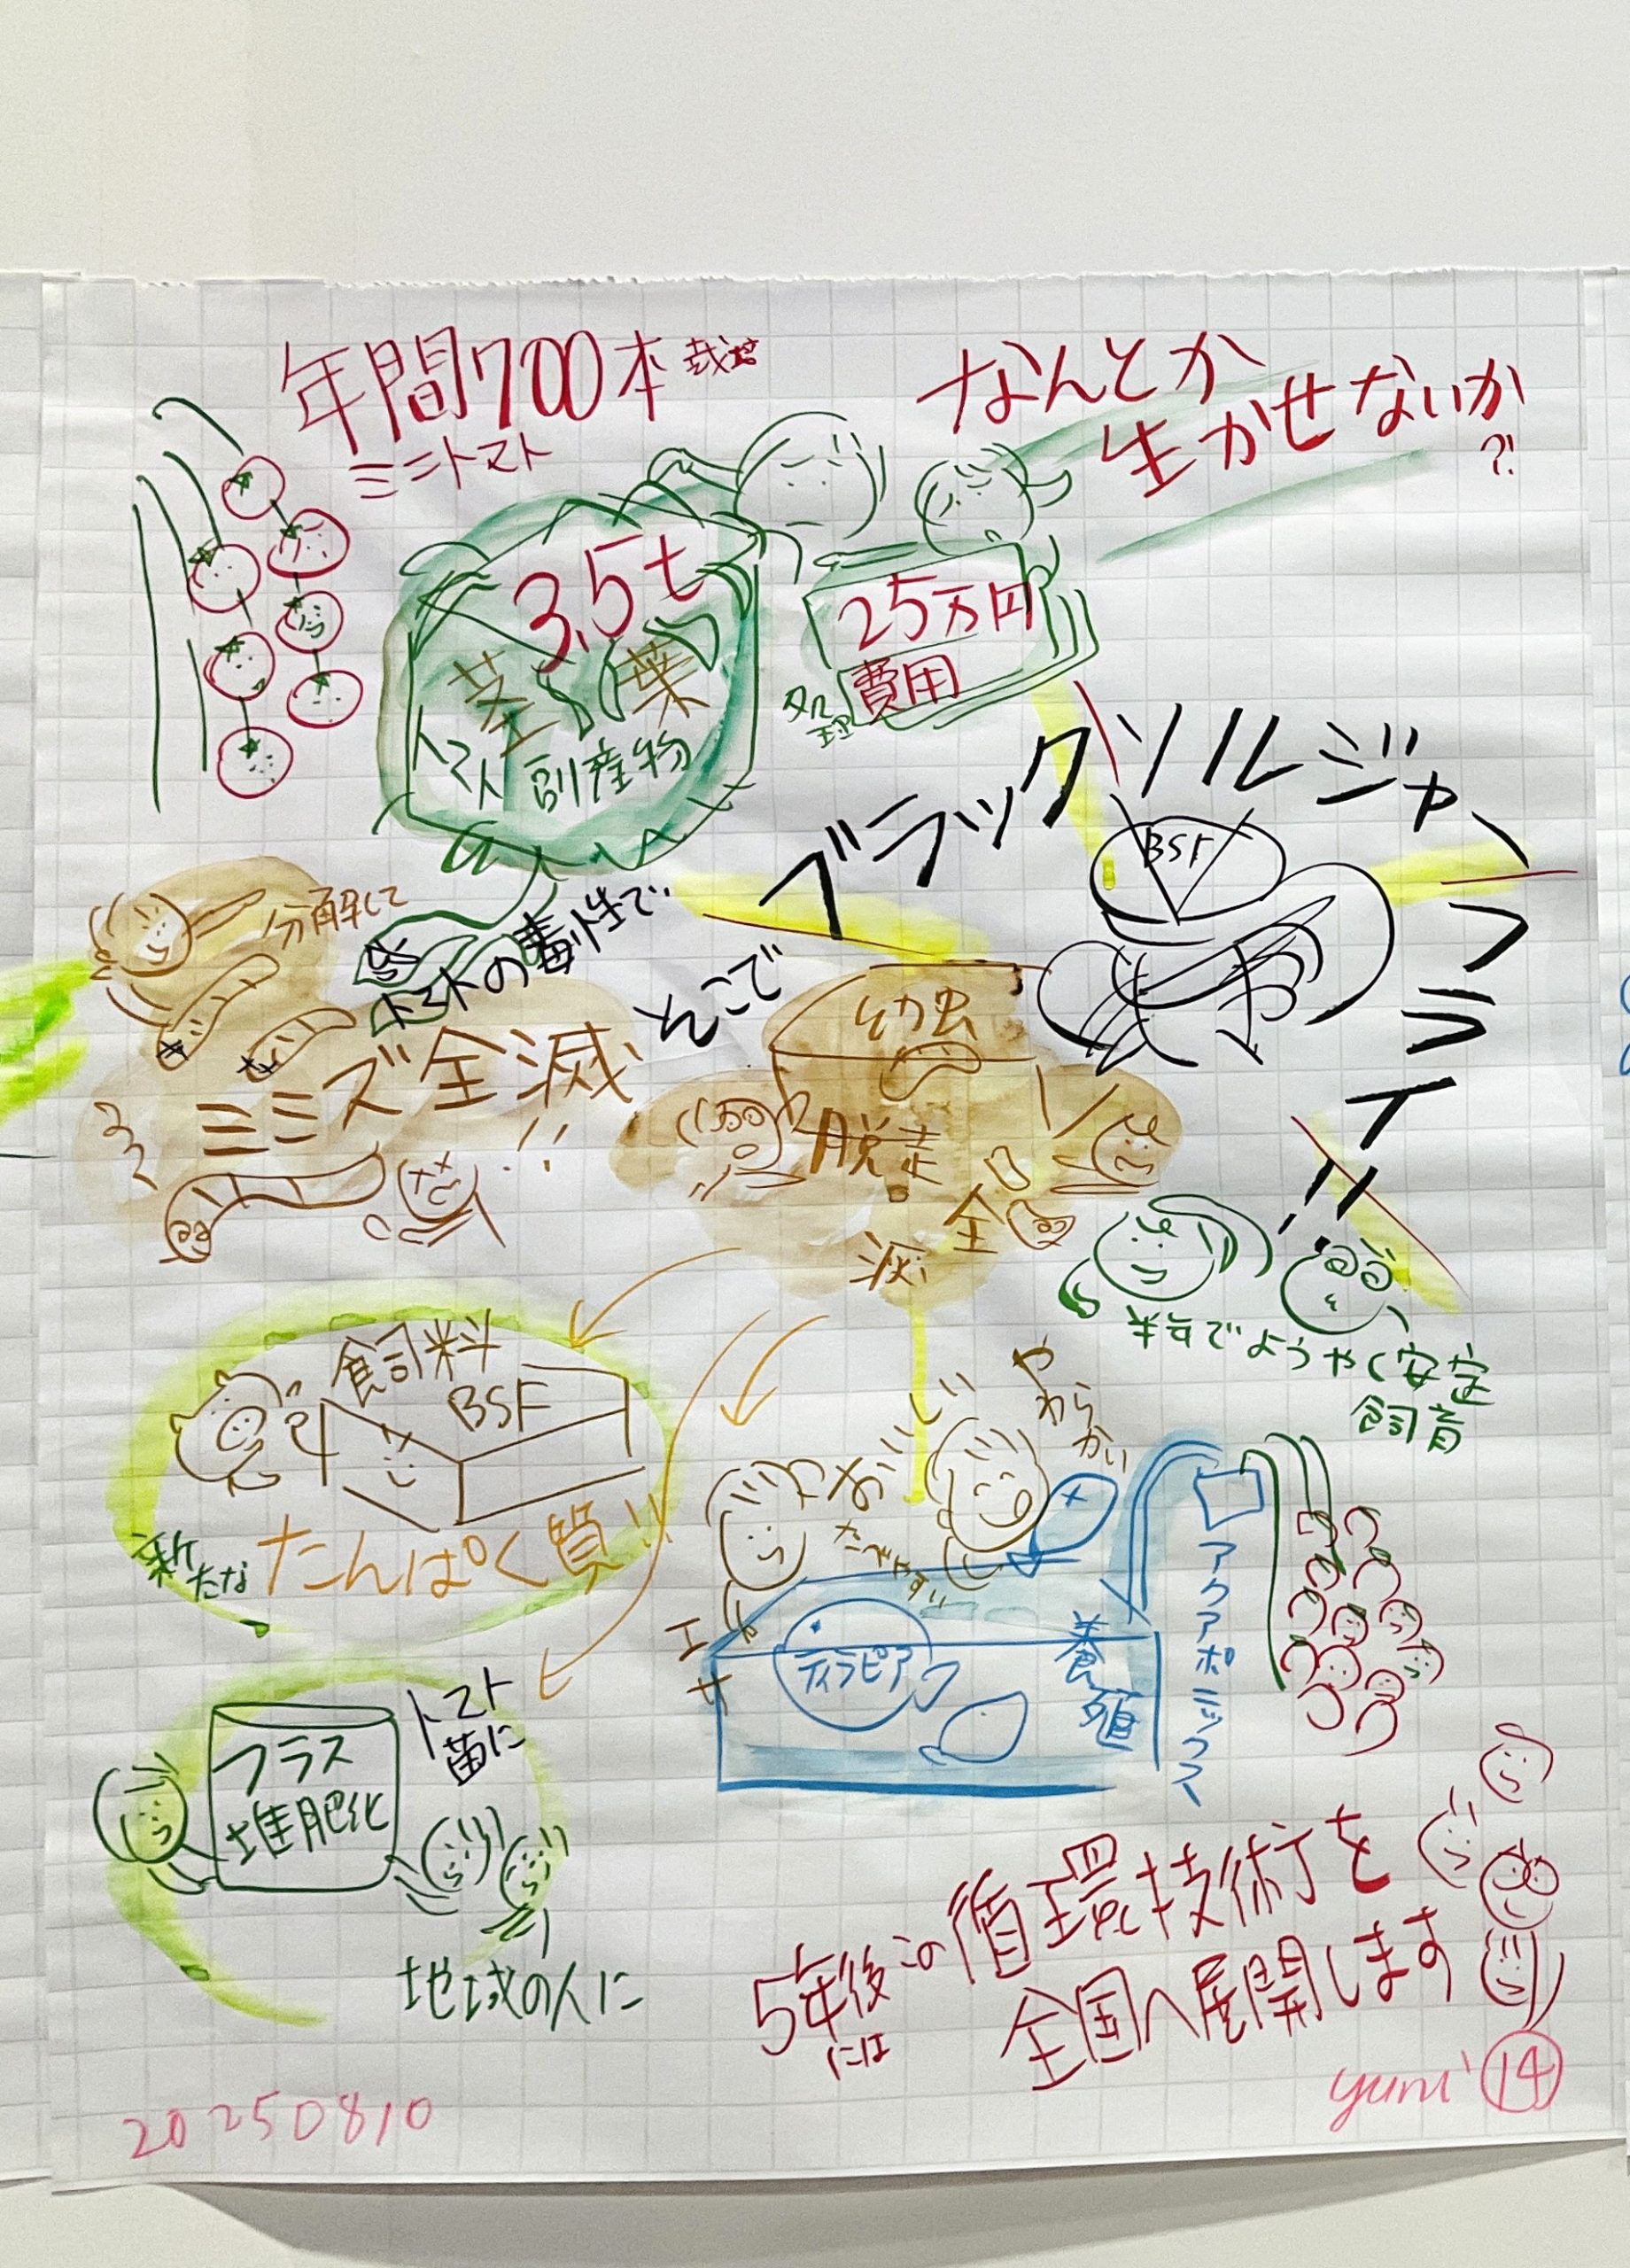 年間1700本栽培
ミニトマト
なんとか
生かせないか
?!
3.5t
茎 葉
トマト副産物
25万円
処理費用
ブラックソルジャーフライ!!
BSF
分解して
トマトの毒性で
ミミズ全滅!!
そこで
幼虫
脱走
全滅
半年でようやく安定
飼育
飼料
BSF
新たなたんぱく質!!
おいしい
やわらかい
たべやすい
エサ
ティラピア
養殖
アクアポニックス
フラス
堆肥化
トマト
苗に
地域の人に
5年後には
この循環技術を
全国へ展開します
20250810
yumi ⑭